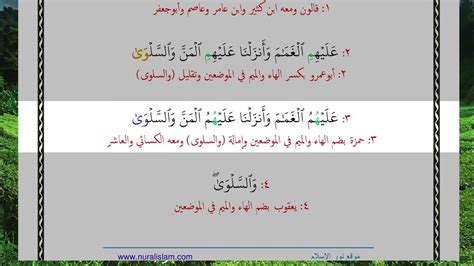 ١: قالون ومعه ابن كثير وابن عامر وعاصم وأبوجعفر
٢: عَلَيْهِمِ ٱلْغَمَٰمَ وَأَنزَلْنَا عَلَيْهِمِ ٱلْمَنَّ وَٱلسَّلْوَىٰ
٢: أبوعمرو بكسر الهاء والميم في الموضعين وتقليل (والسلوى)
٣: عَلَيْهُمُ ٱلْغَمَٰمَ وَأَنزَلْنَا عَلَيْهُمُ ٱلْمَنَّ وَٱلسَّلْوَىٰ
٣: حمزة بضم الهاء والميم في الموضعين وامالة (والسلوى) ومعه الكسائي والعاشر
٤: وَٱلسَّلْوَىٰۖ
٤: يعقوب بضم الهاء والميم في الموضعين
موقع نور الإسلام
www.nuralislam.com